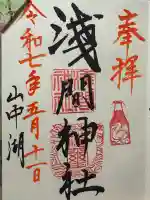 奉拝
淺間神社
令和七年五月十一日
山中湖